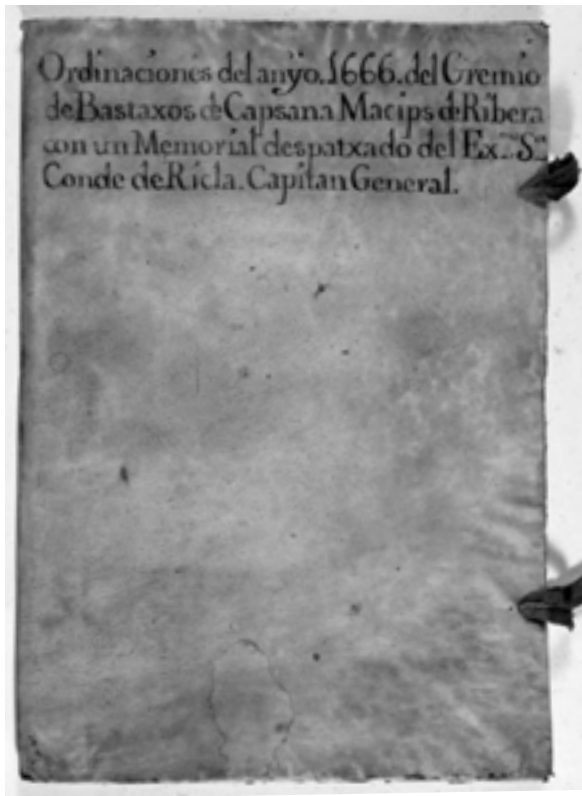 Ordinaciones del anÿo. 1666. del Gremio
de Bastaxos de Capsana Macips de Ribera
con un Memorial despatxado del Ex.mo S.or
Conde de Ricla. Capitan General.